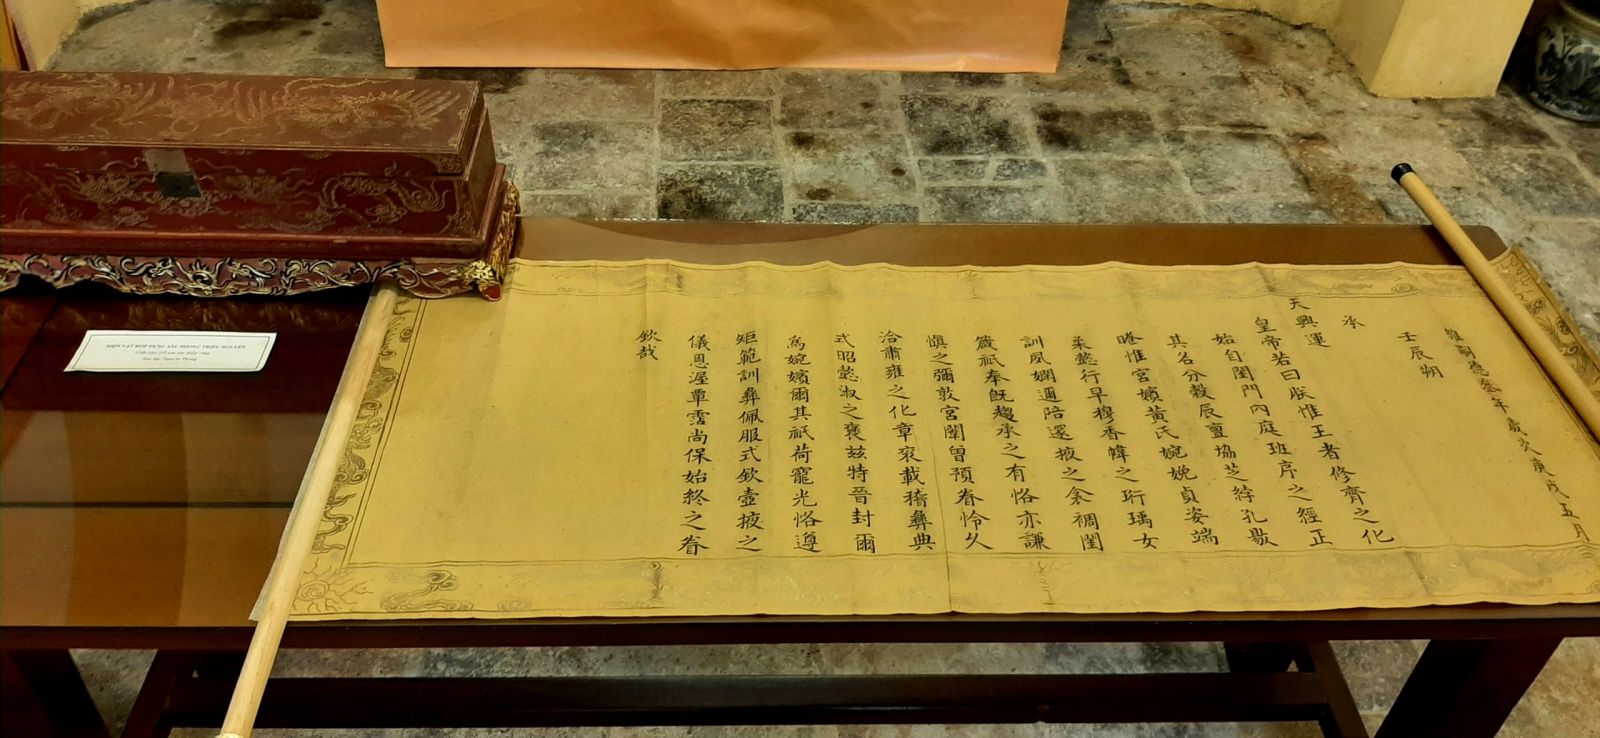 維嗣德叁年歲次庚戌五月
壬辰朔
承
天興運
皇帝若曰朕惟王者修齊之化
始自閨門內庭班序之經正
其名分穀辰亶協芝綍孔敭
睠惟宮嬪黃氏婉娩貞姿端
柔懿行早穆香幃之珩瑀女
訓夙嫻邇陪還掖之衾裯閨
箴祇奉旣趨承之有恪亦謙
慎之彌敦宮闈曾預眷怜久
洽肅雍之化章袞載稽彝典
式昭懿淑之褒茲特晉封爾
為婉嬪爾其祇荷寵光恪遵
矩範訓彝佩服式欽壼掖之
儀恩渥覃霑尚保始終之眷
欽哉
HIỆN VẬT HỘP ĐỰNG SẮC PHONG TRIỀU NGUYỄN